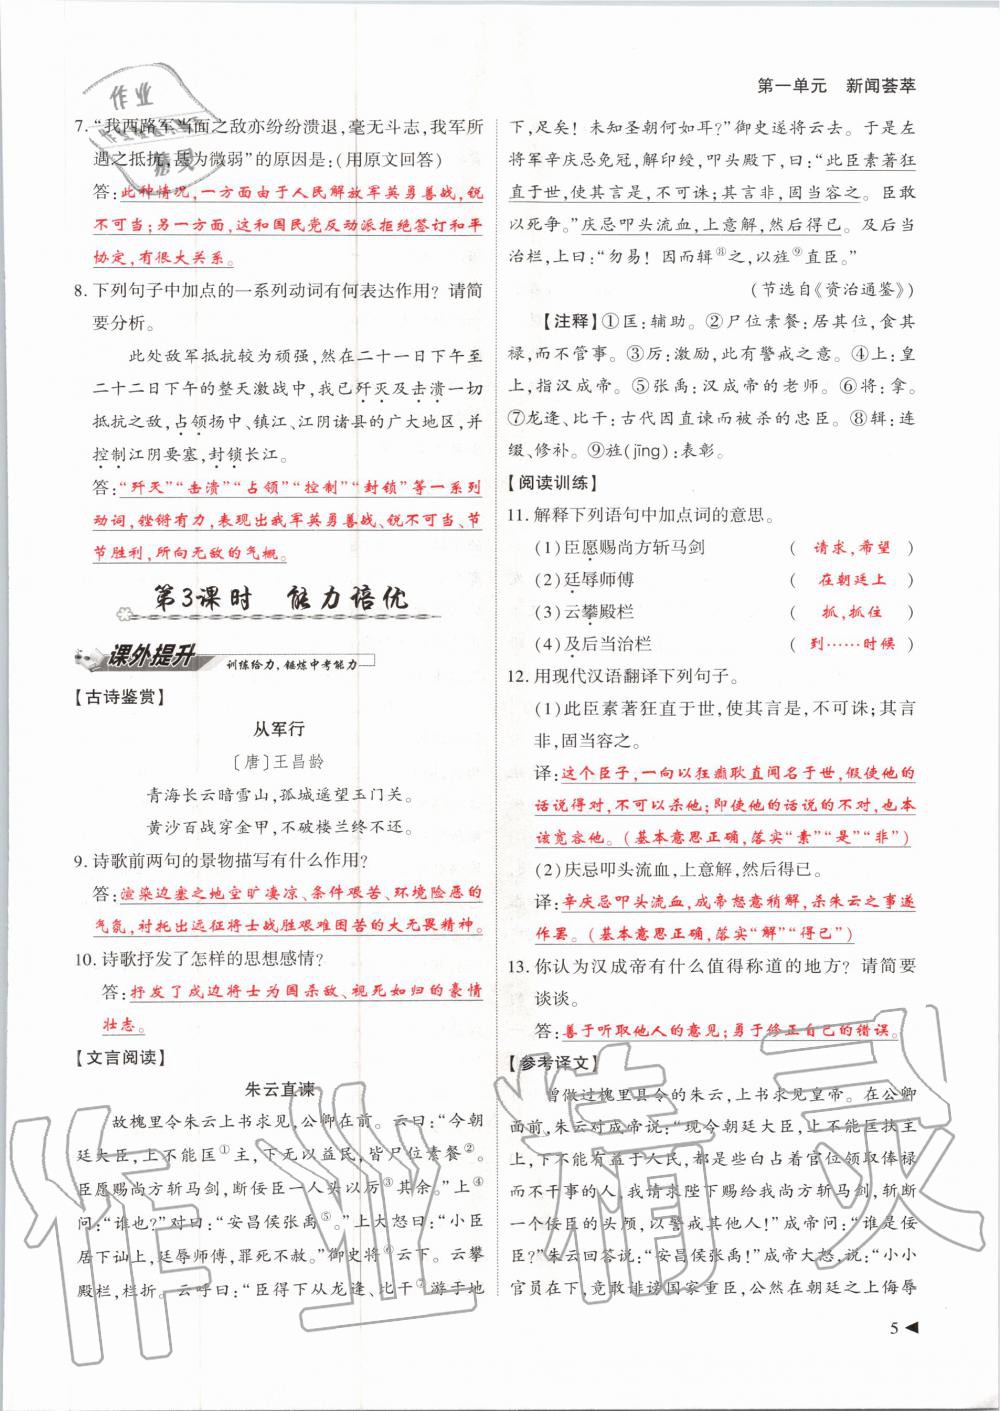 第一单元 新闻荟萃
作业
7.“我西路军当面之敌亦纷纷溃退,毫无斗志,我军所
遇之抵抗,甚为微弱”的原因是:(用原文回答)
答:此种情况,一方面由于人民解放军英勇善战,锐
不可当;另一方面,这和国民党反动派拒绝签订和平
协定,有很大关系。
8. 下列句子中加点的一系列动词有何表达作用?请简
要分析。
此处敌军抵抗较为顽强,然在二十一日下午至
二十二日下午的整天激战中,我已歼灭及击溃一切
抵抗之敌,占领扬中、镇江、江阴诸县的广大地区,并
控制江阴要塞,封锁长江。
答:“歼灭”“击溃”“占领”“控制”“封锁”等一系列
动词,铿锵有力,表现出我军英勇善战、锐不可当、节
节胜利,所向无敌的气概。
第3课时 能力培优
课外提升 训练给力,锤炼中考能力
【古诗鉴赏】
从军行
〔唐〕王昌龄
青海长云暗雪山,孤城遥望玉门关。
黄沙百战穿金甲,不破楼兰终不还。
9. 诗歌前两句的景物描写有什么作用?
答:渲染边塞之地空旷凄凉、条件艰苦、环境险恶的
气氛,衬托出远征将士战胜艰难困苦的大无畏精神。
10. 诗歌抒发了怎样的思想感情?
答:抒发了戍边将士为国杀敌、视死如归的豪情
壮志。
【文言阅读】
朱云直谏
故槐里令朱云上书求见,公卿在前。云曰:“今朝
廷大臣,上不能匡①主,下无以益民,皆尸位素餐②。
臣愿赐尚方斩马剑,断佞臣一人头以厉③其余。”上④
问:“谁也?”对曰:“安昌侯张禹⑤。”上大怒曰:“小臣
居下讪上,廷辱师傅,罪死不赦。”御史将⑥云下。云攀
殿栏,栏折。云呼曰:“臣得下从龙逄、比干⑦游于地
下,足矣!未知圣朝何如耳?”御史遂将云去。于是左
将军辛庆忌免冠,解印绶,叩头殿下,曰:“此臣素著狂
直于世,使其言是,不可诛;其言非,固当容之。臣敢
以死争。”庆忌叩头流血,上意解,然后得已。及后当
治栏,上曰:“勿易!因而辑⑧之,以旌⑨直臣。”
(节选自《资治通鉴》)
【注释】①匡:辅助。②尸位素餐:居其位,食其
禄,而不管事。③厉:激励,此有警戒之意。④上:皇
上,指汉成帝。⑤张禹:汉成帝的老师。⑥将:拿。
⑦龙逢、比干:古代因直谏而被杀的忠臣。⑧辑:连
缀、修补。⑨旌(jīng):表彰。
【阅读训练】
11. 解释下列语句中加点词的意思。
(1)臣愿赐尚方斩马剑 ( 请求,希望 )
(2)廷辱师傅 ( 在朝廷上 )
(3)云攀殿栏 ( 抓,抓住 )
(4)及后当治栏 ( 到……时候 )
12. 用现代汉语翻译下列句子。
(1)此臣素著狂直于世,使其言是,不可诛;其言
非,固当容之。
译:这个臣子,一向以狂癫耿直闻名于世,假使他的
话说得对,不可以杀他;即使他的话说的不对,也本
该宽容他。(基本意思正确,落实“素”“是”“非”)
(2)庆忌叩头流血,上意解,然后得已。
译:辛庆忌叩头流血,成帝怒意稍解,杀朱云之事遂
作罢。(基本意思正确,落实“解”“得已”)
13. 你认为汉成帝有什么值得称道的地方?请简要
谈谈。
答:善于听取他人的意见;勇于修正自己的错误。
【参考译文】
曾做过槐里县令的朱云,上书求见皇帝。在公卿
面前,朱云对成帝说:“现今朝廷大臣,上不能匡扶主
上,下不能有益于人民,都是些白占着官位领取俸禄
而不干事的人,我请求陛下赐给我尚方斩马剑,斩断
一个佞臣的头颅,以警戒其他人!”成帝问:“谁是佞
臣?”朱云回答说:“安昌侯张禹!”成帝大怒,说:“小小
官员在下,竟敢诽谤国家重臣,公然在朝廷之上侮辱
5
作业精灵